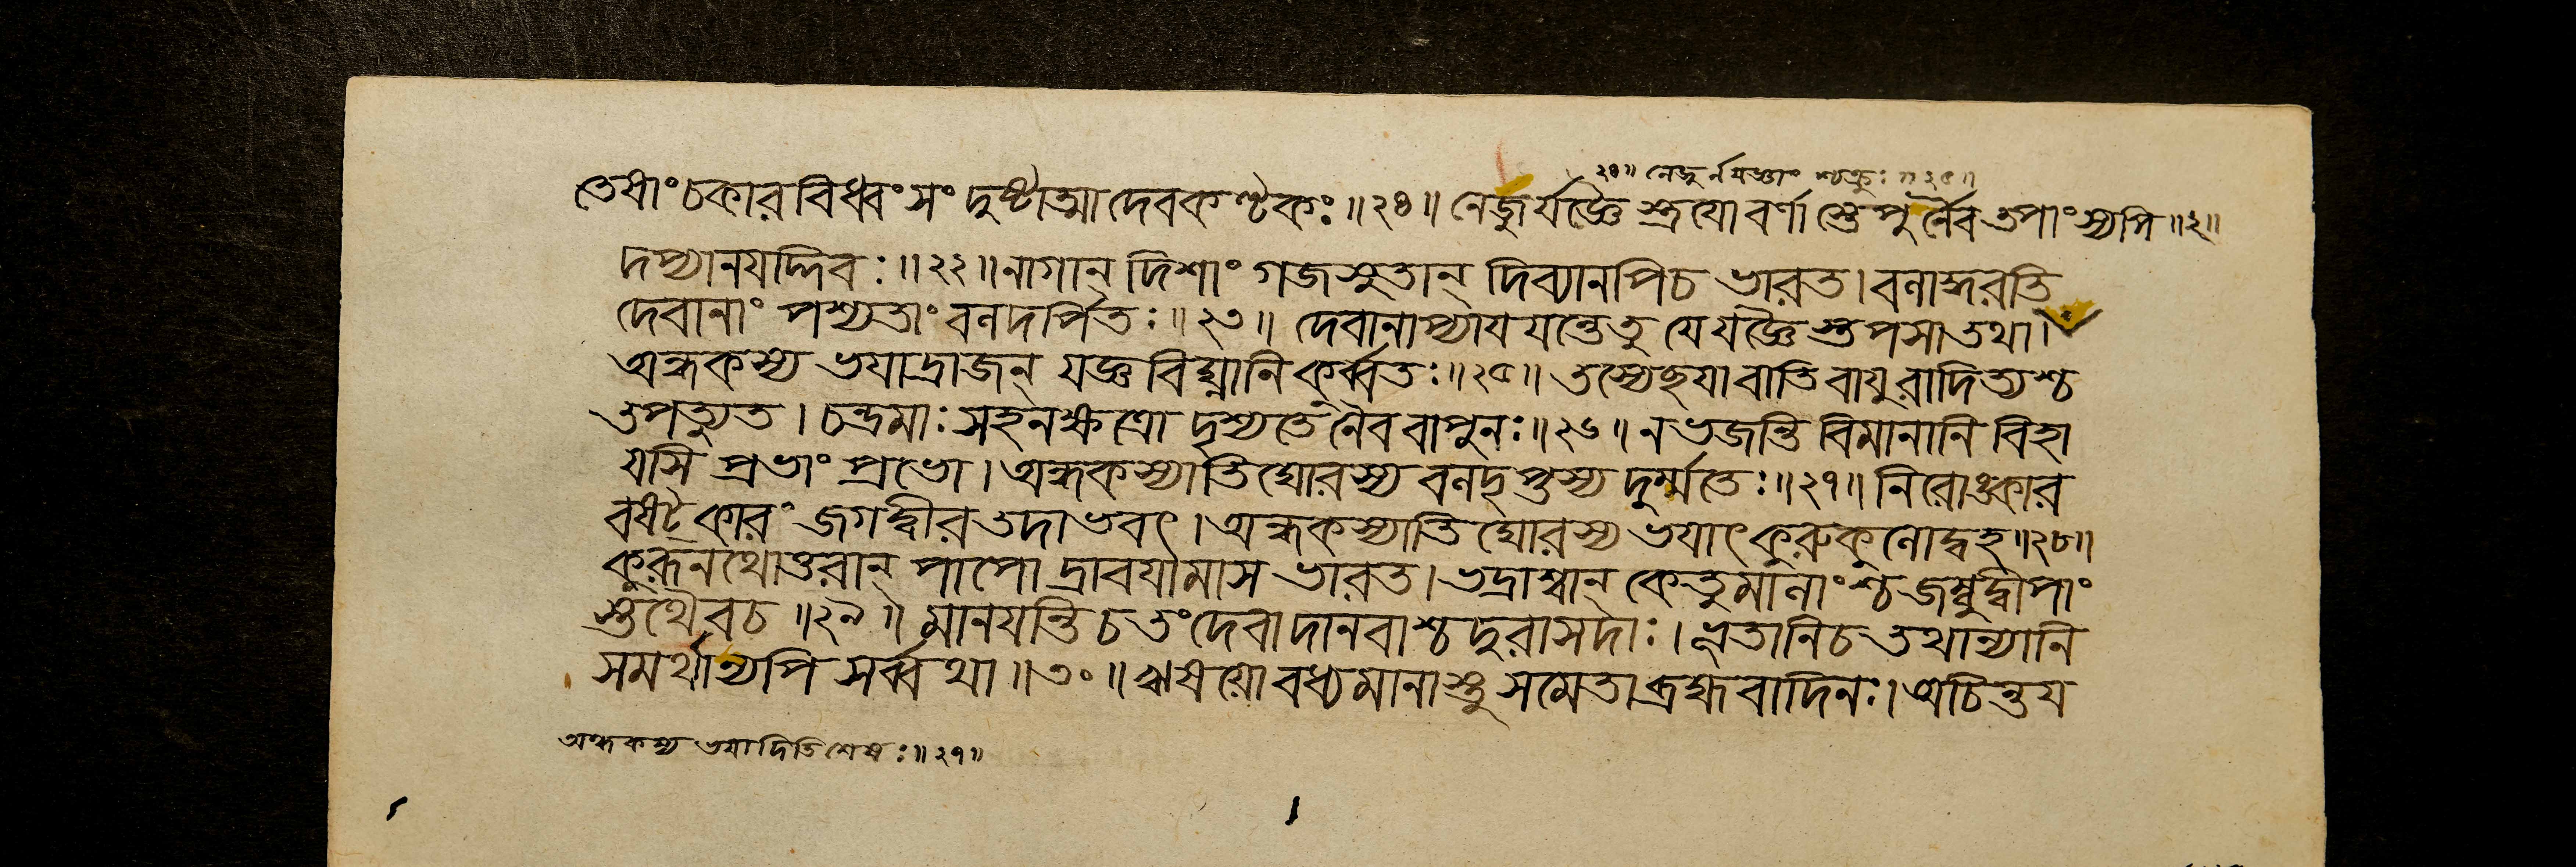 ২৪॥ নেজুর্নযজ্ঞাং শ্চক্রুঃ ॥২৫॥
তেষাং চকার বিধ্বংসং দুষ্টাত্মা দেবকণ্টকঃ॥২৪॥ নেজুর্যজ্ঞৈ স্ত্রযো বর্ণা স্তেপুর্নৈব তপাংস্যপি॥২॥
দপ্যানযদ্দিবঃ॥২২॥নাগান্ দিশাং গজসুতান্ দিব্যানপিচ ভারত।বলাদ্ধরতি
দেবানাং পশ্যতাং বলদর্পিতঃ॥২৩॥ দেবানাপ্যাযযন্তেতু যে যজ্ঞৈ স্তপসা তথা।
অন্ধকস্য ভযাদ্রাজন্ যজ্ঞ বিঘ্নানি কুর্ব্বতঃ॥২৫॥ তস্যেচ্ছযা বাতি বাযুরাদিত্যশ্চ
তপত্যুত। চন্দ্রমাঃ সহ নক্ষত্রো দৃশ্যতে নৈব বাপুনঃ॥২৬॥ নভ্রজন্তি বিমানানি বিহা
যসি প্রভাং প্রভো।অন্ধকস্যাতি ঘোরস্য বলদৃপ্তস্য দুর্ম্মতেঃ॥২৭॥ নিরোঙ্কার
বষট্কারং জগদ্বীর তদাভবৎ।অন্ধকস্যাতি ঘোরস্য ভযাৎ কুরুকুলোদ্বহ॥২৮॥
কুরূনথোত্তরান্ পাপো দ্রাবযামাস ভারত।ভদ্রাশ্বান্ কেতুমালাংশ্চ জম্বুদ্বীপাং
স্তথৈবচ॥২৯॥ মানযন্তি চ তং দেবা দানবাশ্চ দুরাসদাঃ। ভূতানিচ তথান্যানি
সমর্থান্যপি সর্ব্বথা॥৩০॥ ঋষযো বধ্যমানাস্তু সমেতা ব্রহ্মবাদিনঃ।অচিন্তয
অন্ধকস্য ভযাদিতি শেষঃ॥২৭॥